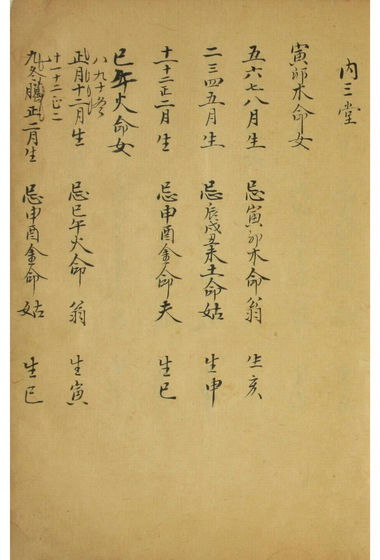 内三堂
寅卯木命女
五六七八月生 忌寅卯木命翁 生亥
二三四五月生 忌辰戌丑未土命姑 生申
十一十二正二月生 忌申酉金命夫 生巳
巳午火命女
八九十冬
正月十二月生 忌巳午火命翁 生寅
十一十二正二
九冬臘正二月生 忌申酉金命姑 生巳